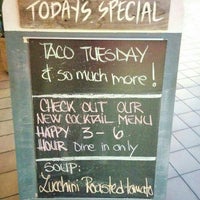 TODAYS SPECIAL
TACO TUESDAY
& so much more!
CHECK OUT OUR
NEW COCKTAIL MENU
HAPPY 3-6
HOUR Dine in only
SOUP:
Zucchini Roasted tomato